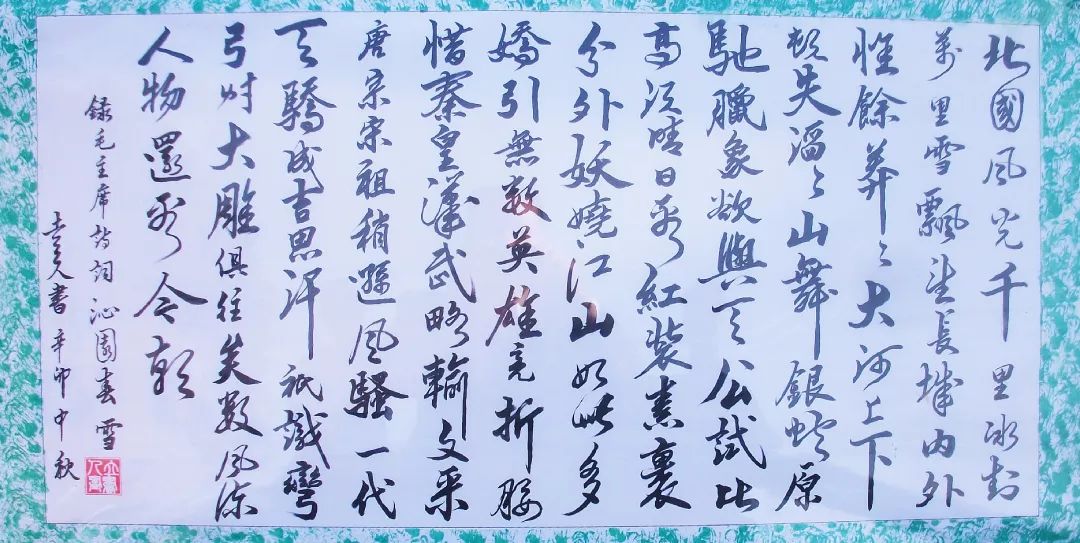 北國風光千里冰封
萬里雪飄望長城内外
惟餘莽々大河上下
頓失滔々山舞銀蛇原
馳臘象欲與天公試比
高須晴日看紅裝素裹
分外妖嬈江山如此多
嬌引無數英雄竞折腰
惜秦皇漢武略輸文采
唐宗宋祖稍遜風騷一代
天驕成吉思汗祇識彎
弓射大雕俱往矣數風流
人物還看今朝
錄毛主席詩詞沁園春雪
書辛卯中秋